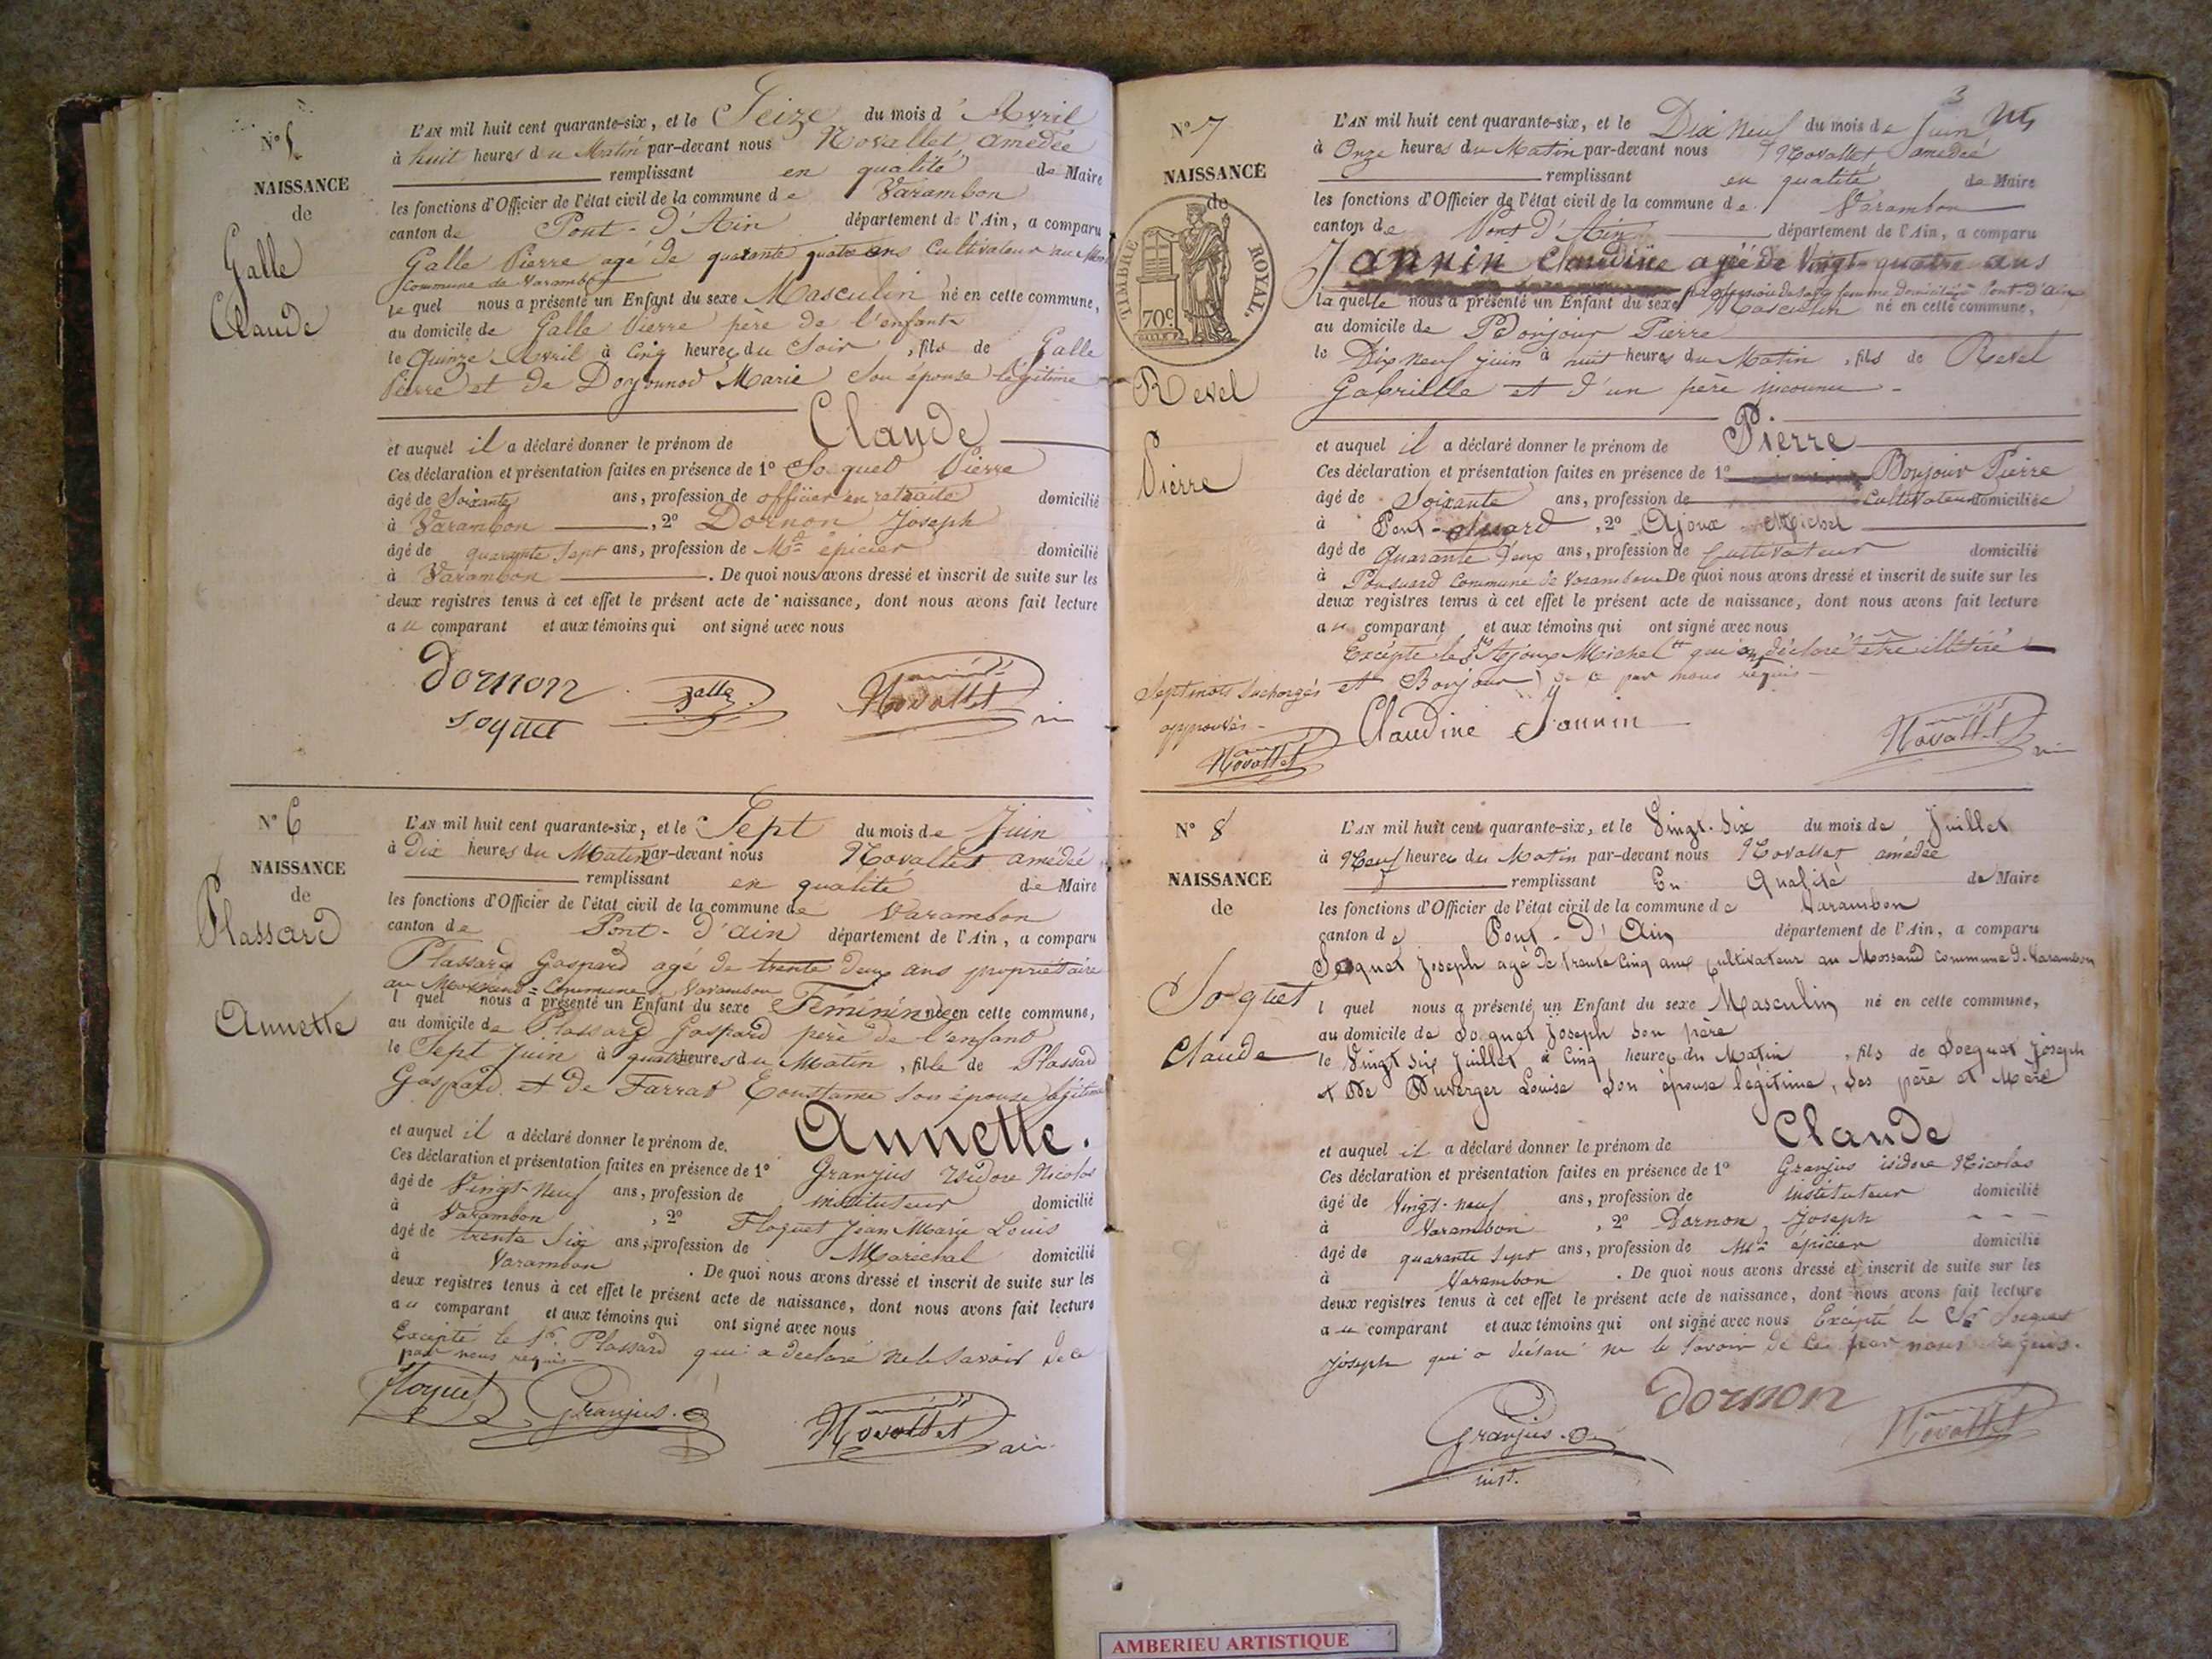 N° 5
NAISSANCE
de
Galle
Claude
L'AN mil huit cent quarante-six, et le Seize du mois d'Avril
à huit heures du Matin par-devant nous Novallet amédée
remplissant en qualité de Maire
les fonctions d'Officier de l'état civil de la commune de Varambon
canton de Pont-d'Ain département de l'Ain, a comparu
Galle Pierre agé de quarante quatre ans Cultivateur au
commune de Varambon
le quel nous a présenté un Enfant du sexe Masculin né en cette commune,
au domicile de Galle Pierre père de l'enfant
le Quinze Avril à Cinq heures du Soir, fils de Galle
Pierre et de Marie son épouse légitime
et auquel il a déclaré donner le prénom de Claude
Ces déclaration et présentation faites en présence de 1° Socquet Pierre
âgé de Soixante ans, profession de officier en retraite domicilié
à Varambon, 2° Dornon Joseph
âgé de quarante sept ans, profession de Md épicier domicilié
à Varambon. De quoi nous avons dressé et inscrit de suite sur les
deux registres tenus à cet effet le présent acte de naissance, dont nous avons fait lecture
au comparant et aux témoins qui ont signé avec nous
Dornon galle Novallet
soquet
N° 6
NAISSANCE
de
Plassard
Annette
L'AN mil huit cent quarante-six, et le Sept du mois de Juin
à Dix heures du Matin par-devant nous Novallet amédée
remplissant en qualité de Maire
les fonctions d'Officier de l'état civil de la commune de Varambon
canton de Pont-d'ain département de l'Ain, a comparu
Plassard Gaspard agé de trente deux ans propriétaire
au Mossand Commune Varambon
l quel nous a présenté un Enfant du sexe Féminin née en cette commune,
au domicile de Plassard Gaspard père de l'enfant
le Sept Juin à quatre heures du Matin, fille de Plassard
Gaspard et de Farrat Constance son épouse légitime
et auquel il a déclaré donner le prénom de Annette.
Ces déclaration et présentation faites en présence de 1° Granjus isidore Nicolas
âgé de Vingt-neuf ans, profession de instituteur domicilié
à Varambon, 2° Floquet Jean Marie Louis
âgé de trente Six ans, profession de Marechal domicilié
à Varambon. De quoi nous avons dressé et inscrit de suite sur les
deux registres tenus à cet effet le présent acte de naissance, dont nous avons fait lecture
au comparant et aux témoins qui ont signé avec nous
Excepté le Sr Plassard qui a déclaré ne le savoir de ce
par nous requis
floquet Granjus Novallet
3
N° 7
NAISSANCE
de
TIMBRE ROYAL.
70c
Revel
Pierre
L'AN mil huit cent quarante-six, et le Dix neuf du mois de Juin
à Onze heures du Matin par-devant nous Novallet amédée
remplissant en qualité de Maire
les fonctions d'Officier de l'état civil de la commune de Varambon
canton de Pont d'Ain département de l'Ain, a comparu
Jannin Claudine agée de Vingt-quatre ans
profession de sage femme Domiciliée à Pont-d'ain
la quelle nous a présenté un Enfant du sexe Masculin né en cette commune,
au domicile de Bonjour Pierre
le Dix neuf juin à huit heures du Matin, fils de Revel
Gabrielle et d'un père inconnu
et auquel il a déclaré donner le prénom de Pierre
Ces déclaration et présentation faites en présence de 1° Bonjour Pierre
âgé de Soixante ans, profession de Cultivateur domiciliée
à, 2° Ajoux Michel
âgé de Quarante Deux ans, profession de Cultivateur domicilié
à Commune de Varambon De quoi nous avons dressé et inscrit de suite sur les
deux registres tenus à cet effet le présent acte de naissance, dont nous avons fait lecture
au comparant et aux témoins qui ont signé avec nous
Excepté les Srs Ajoux Michel qui ont déclaré être illétiré
et Bonjour de ce par nous requis
Sept mots surchargés
approuvés
Novallet
Claudine Jannin Novallet
N° 8
NAISSANCE
de
Socquet
Claude
L'AN mil huit cent quarante-six, et le Vingt-Six du mois de Juillet
à Neuf heures du Matin par-devant nous Novallet amédée
remplissant En Qualité de Maire
les fonctions d'Officier de l'état civil de la commune de Varambon
canton de Pont-D'Ain département de l'Ain, a comparu
Socquet Joseph agé de trente Cinq ans Cultivateur au Mossand commune d. Varambon
l quel nous a présenté un Enfant du sexe Masculin né en cette commune,
au domicile de Socquet Joseph son père
le Vingt six Juillet à Cinq heures du Matin, fils de Socquet Joseph
et De Duverger Louise son épouse légitime, ses père et Mère
et auquel il a déclaré donner le prénom de Claude
Ces déclaration et présentation faites en présence de 1° Granjus isidore Nicolas
âgé de Vingt-neuf ans, profession de instituteur domicilié
à Varambon, 2° Dornon, Joseph
âgé de quarante Sept ans, profession de Md épicier domicilié
à Varambon. De quoi nous avons dressé et inscrit de suite sur les
deux registres tenus à cet effet le présent acte de naissance, dont nous avons fait lecture
au comparant et aux témoins qui ont signé avec nous Excepté le Sr Socquet
Joseph qui a déclaré ne le savoir de ce par nous requis.
Dornon
Granjus Novallet
inst.
AMBERIEU ARTISTIQUE